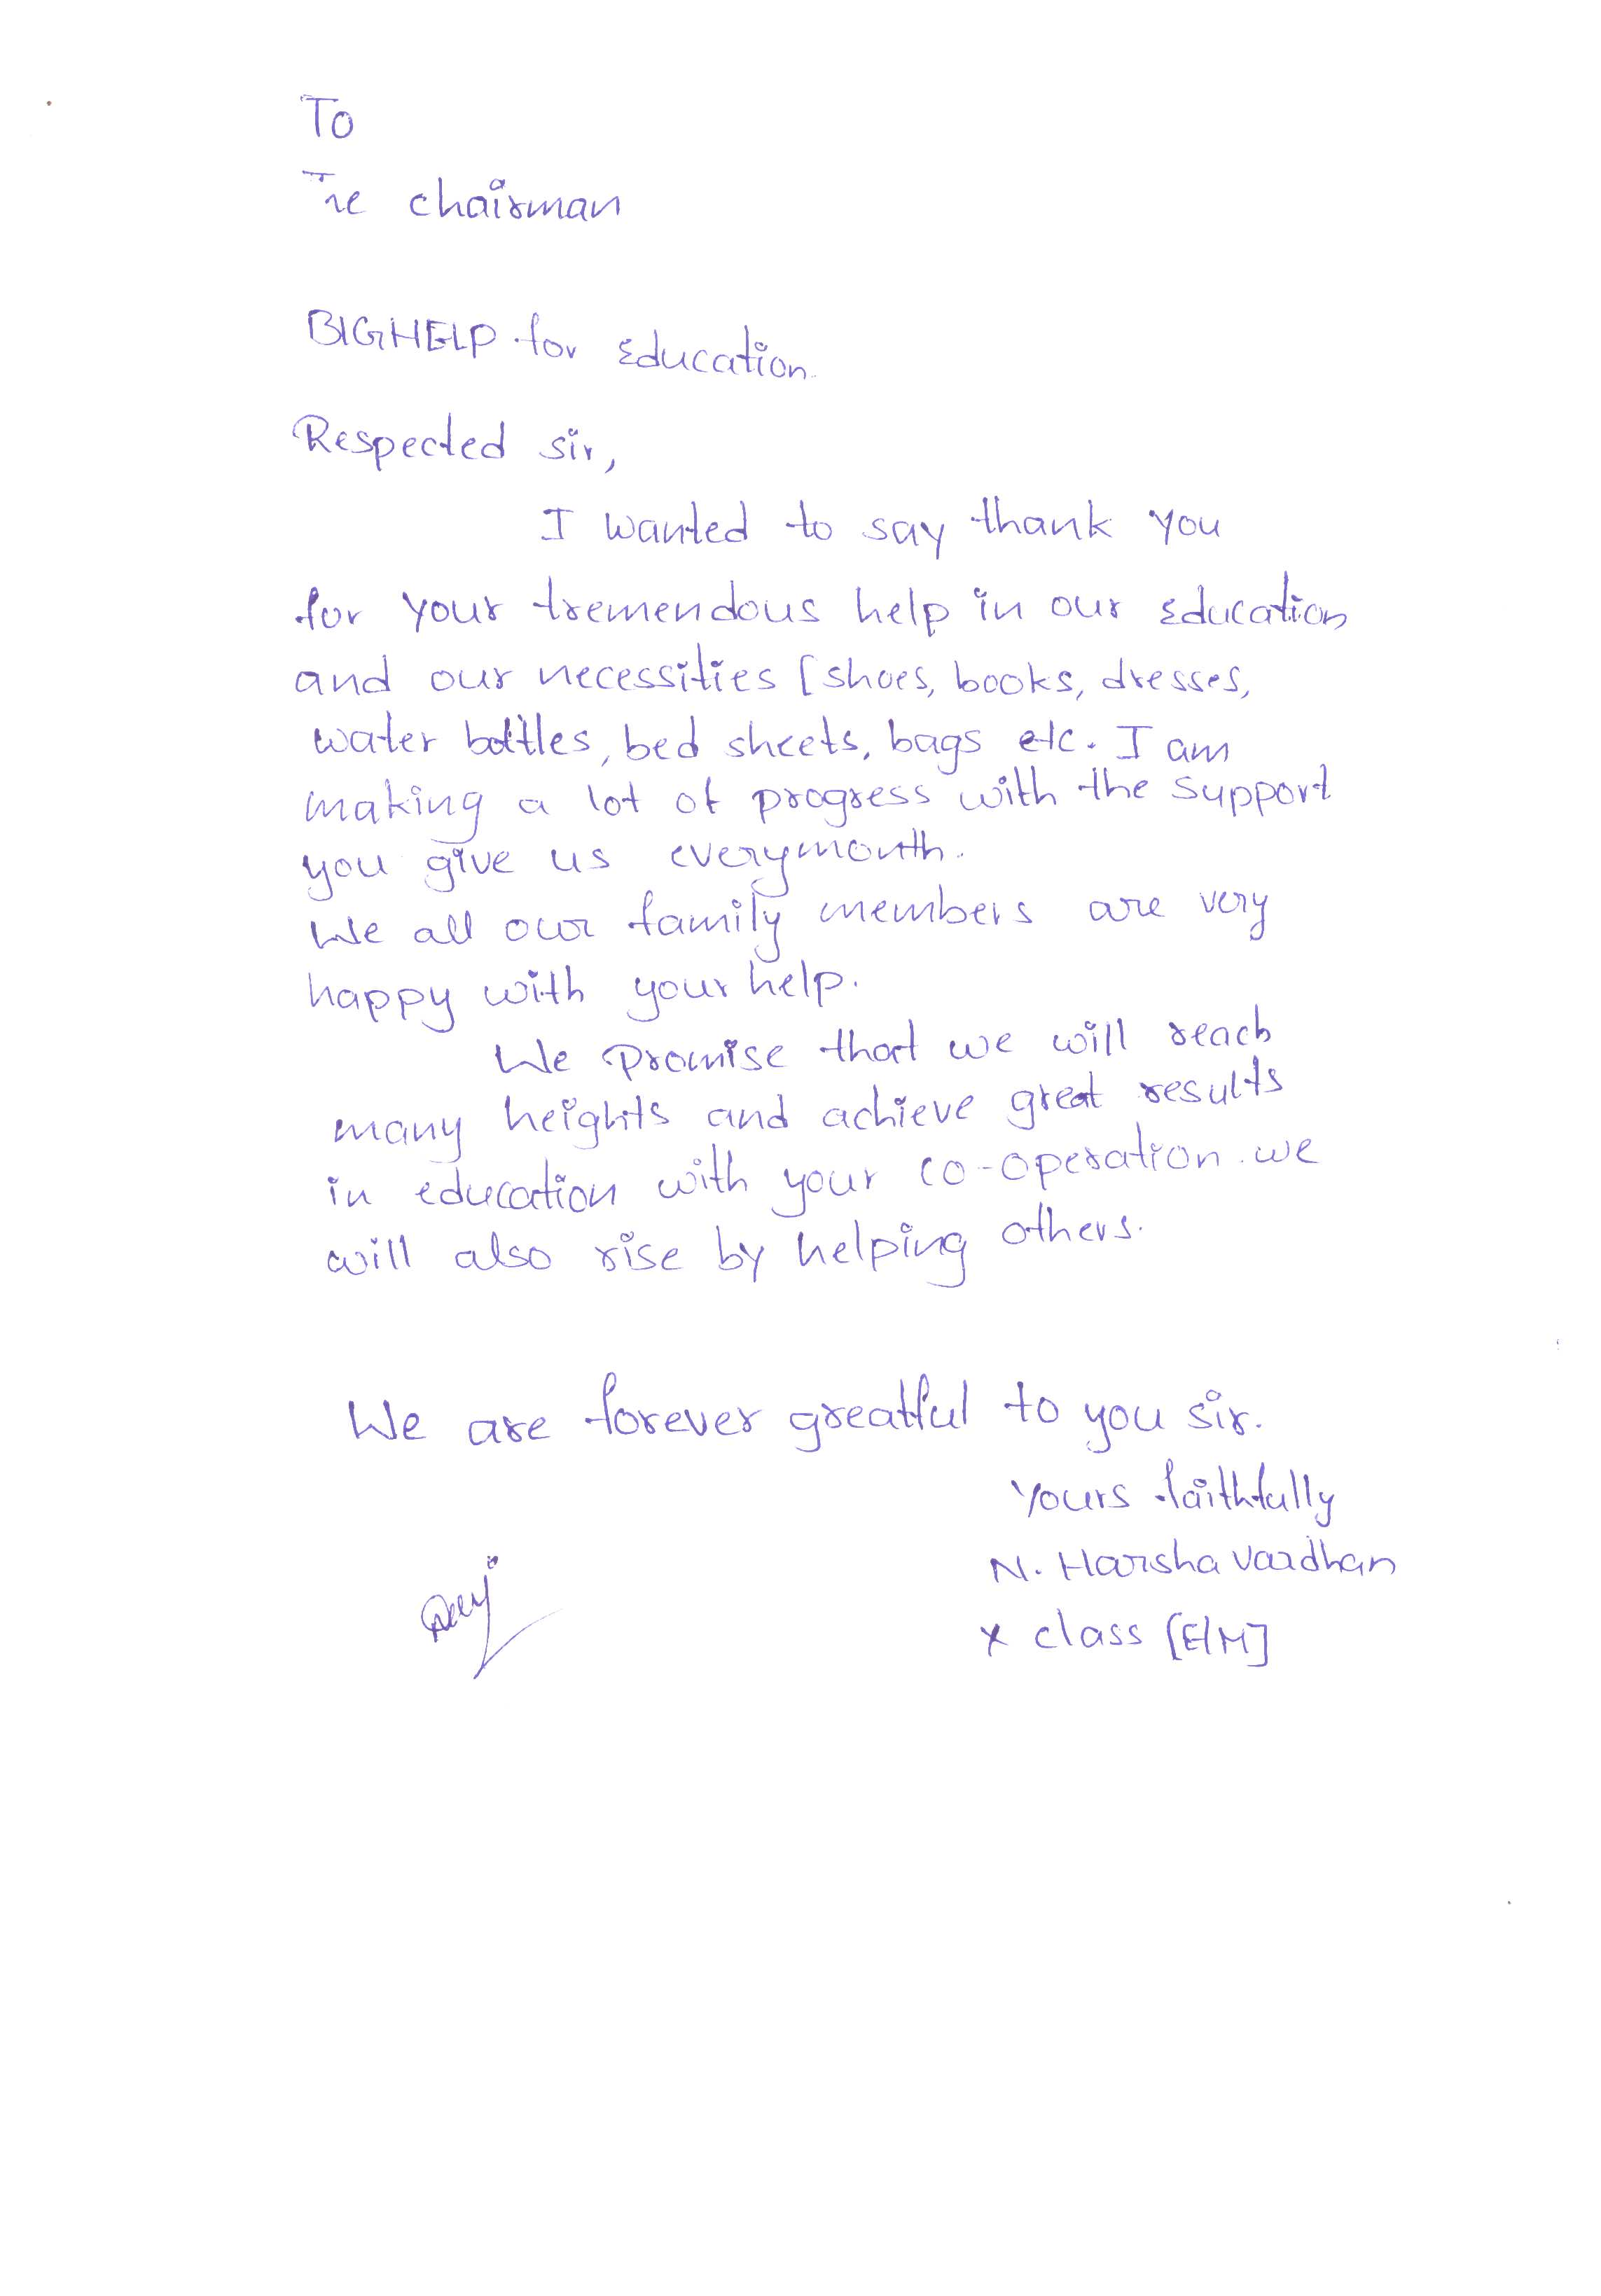 To
The chairman
BIGHELP for Education.
Respected sir,
I wanted to say thank you
for your tremendous help in our Education
and our necessities [shoes, books, dresses,
water bottles, bed sheets, bags etc. I am
making a lot of progress with the support
you give us everymonth.
We all our family members are very
happy with your help.
We promise that we will reach
many heights and achieve great results
in education with your co-operation. we
will also rise by helping others.
We are forever greatful to you sir.
Yours faithfully
N. Harsha Vardhan
X class [E/M]